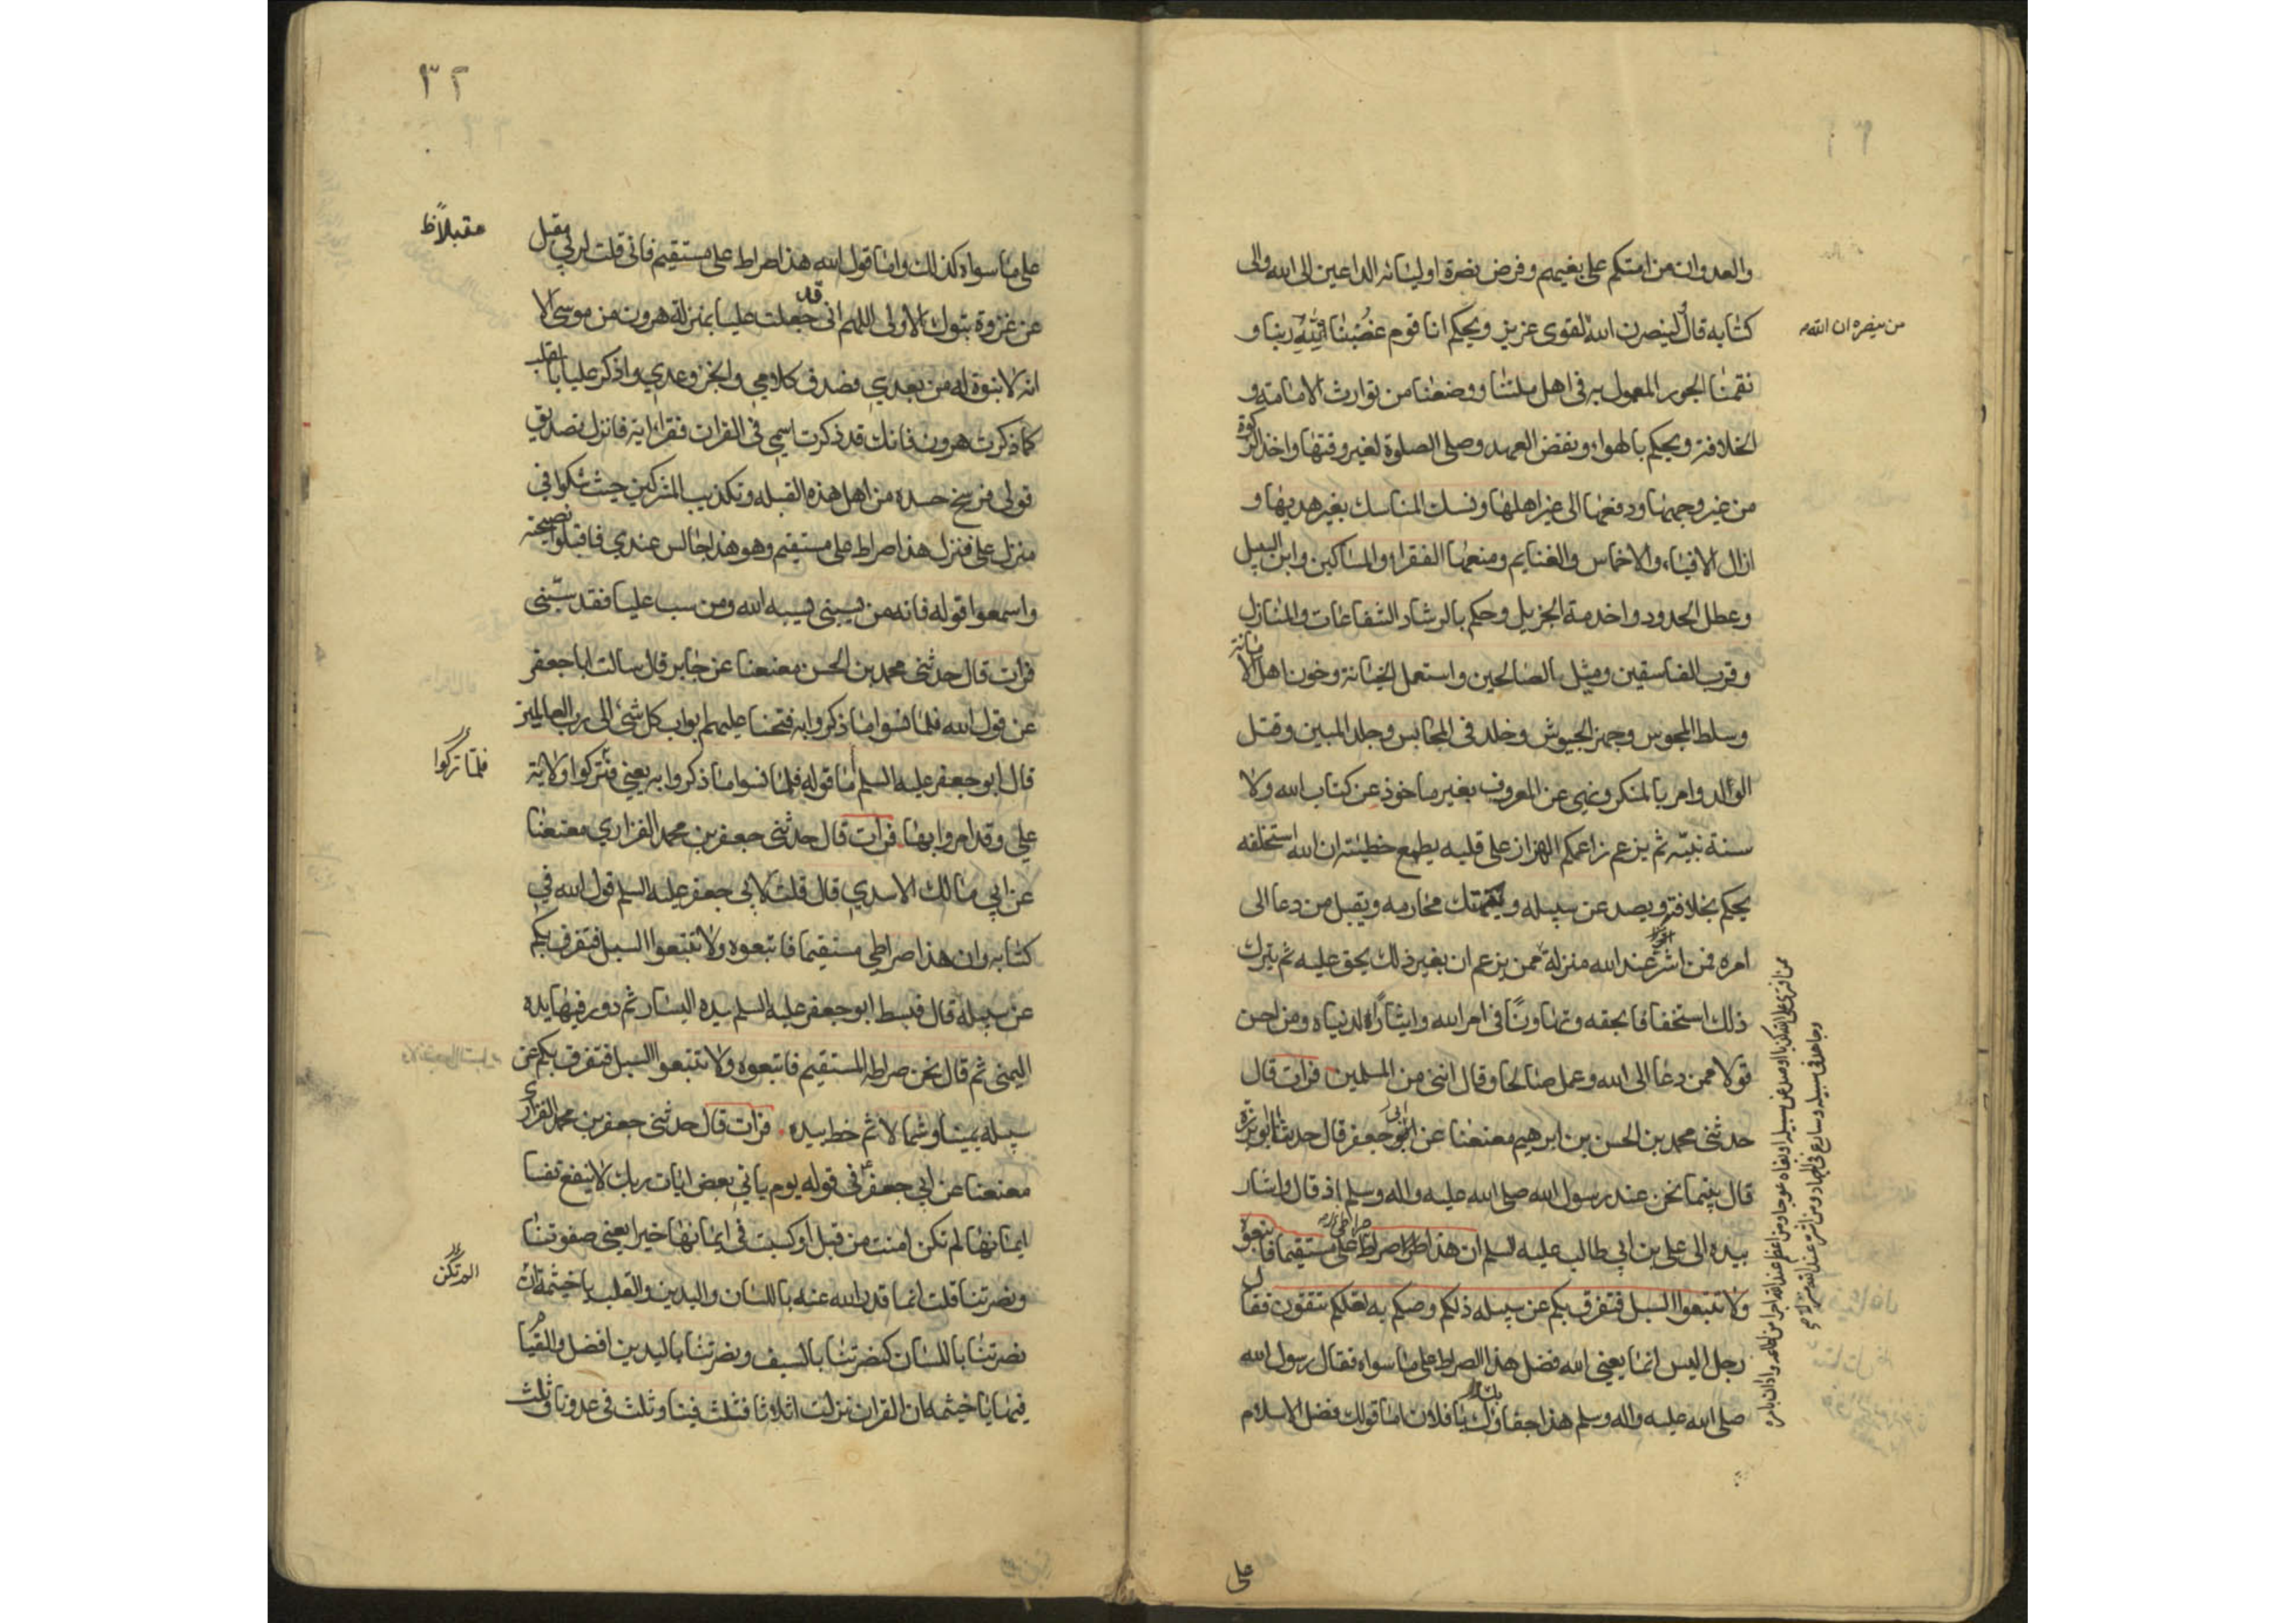 والعدوان من امتكم على بغيهم وفرض نصرة اوليائه الداعين الى الله والى
كتابه قال لينصرن الله لقوى عزيز ويحكم انا قوم غضبنا لله ربنا و
من ينصره ان الله
نقمنا الجور المعمول به فى اهل ملتنا ووضعنا من توارث الامامة و
الخلافة ويحكم بالهواء ونقض العهد وصلى الصلوة لغير وقتها واخذ الزكوة
من غير وجهها ودفعها الى غير اهلها ونسك المناسك بغير هديها و
ازال الافياء والاخماس والغنايم ومنعها الفقراء والمساكين وابن السبيل
وعطل الحدود واخذ منه الجزيل وحكم بالرشا والشفاعات والمنازل
وقرب الفاسقين ومثل بالصالحين واستعمل الخيانة وخون اهل الامانة
وسلط المجوس وجهز الجيوش وخلد فى المحابس وجلد المبين وقتل
الوالد وامر بالمنكر ونهى عن المعروف بغير ماخوذ عن كتاب الله ولا
سنة نبيه ثم يزعم زاعمكم الهزاز على قلبه يطمع خطيئته ان الله استخلفه
يحكم بخلافته ويصد عن سبيله وينتهك محارمه ويقتل من دعا الى
امره فمن اشر عند الله منزلة ممن يزعم ان بغير ذلك يحق عليه ثم يترك
ذلك استخفافا بحقه وتهاونا فى امر الله وايثارا لدنياه ومن احسن
قولا ممن دعا الى الله وعمل صالحا وقال اننى من المسلمين فرات قال
حدثنى محمد بن الحسن بن ابرهيم معنعنا عن ابى جعفر قال حدثنا ابو برزة
قال بينما نحن عند رسول الله صلى الله عليه واله وسلم اذ قال واشار
بيده الى على بن ابى طالب عليه السلم ان هذا صراطى مستقيما فاتبعوه
ولا تتبعوا السبل فتفرق بكم عن سبيله ذلكم وصكم به لعلكم تتقون فقال
رجل اليس انما يعنى الله فضل هذا الصراط على ما سواه فقال رسول الله
صلى الله عليه واله وسلم هذا جفاؤك يا فلان اما قولك فضل الاسلام
على
٣٢
على ما سواه كذلك واما قول الله هذا صراط على مستقيم فانى قلت لربى مقبل
مقبلا ظ
عن غزوة تبوك الاولى اللهم انى قد جعلت عليا بمنزلة هرون من موسى الا
انه لا نبوة له من بعدى فصدق كلامى وانجز وعدى واذكر عليا
كما ذكرت هرون فانك قد ذكرت اسمه فى القران فقرا اية فانزل تصديق
قولى فرسخ حسده من اهل هذه القبله وتكذيب المشركين حيث شكوا فى
منزل على فنزل هذا صراط على مستقيم وهو هذا جالس عندى فاقبلوا نصيحته
واسمعوا قوله فانه من يسبنى يسبه الله ومن سب عليا فقد سبنى
فرات قال حدثنى محمد بن الحسن معنعنا عن جابر قال سالت ابا جعفر
عن قول الله فلما نسوا ما ذكروا به فتحنا عليهم ابواب كل شئ الى رب العالمين
قال ابو جعفر عليه السلم اما قوله فلما نسوا ما ذكروا به يعنى فتركوا ولاية
فلما تركوا
على وقد امروا بها فرات قال حدثنى جعفر بن محمد الفزارى معنعنا
عن ابى مالك الاسدى قال قلت لابى جعفر عليه السلم قول الله فى
كتابه وان هذا صراطى مستقيما فاتبعوه ولا تتبعوا السبل فتفرق بكم
عن سبيله قال فبسط ابو جعفر عليه السلم يده اليسار ثم دور فيها يده
اليمنى ثم قال نحن صراطه المستقيم فاتبعوه ولا تتبعوا السبل فتفرق بكم عن
سبيله يمينا وشمالا ثم خط بيده فرات قال حدثنى جعفر بن محمد الفزارى
معنعنا عن ابى جعفر فى قوله يوم ياتى بعض ايات ربك لا ينفع نفسا
ايمانها لم تكن امنت من قبل او كسبت فى ايمانها خيرا يعنى صفوتنا
ونصرتنا قلت انما قدر الله عنه باللسان واليدين والقلب يا خيثمة ان
الم تكن
نصرتنا باللسان كنصرتنا بالسيف ونصرتنا باليدين افضل والقيام
فيها يا خيثمه ان القران نزلت اثلاثا فثلث فينا وثلث فى عدونا وثلث